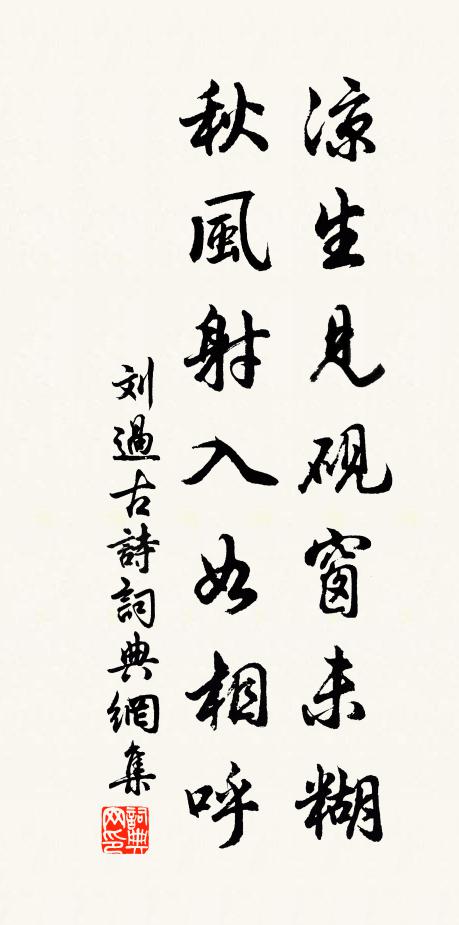 凉生見硯窗未糊
秋風射入如相呼
刘過古詩詞典網集
詞典
网印